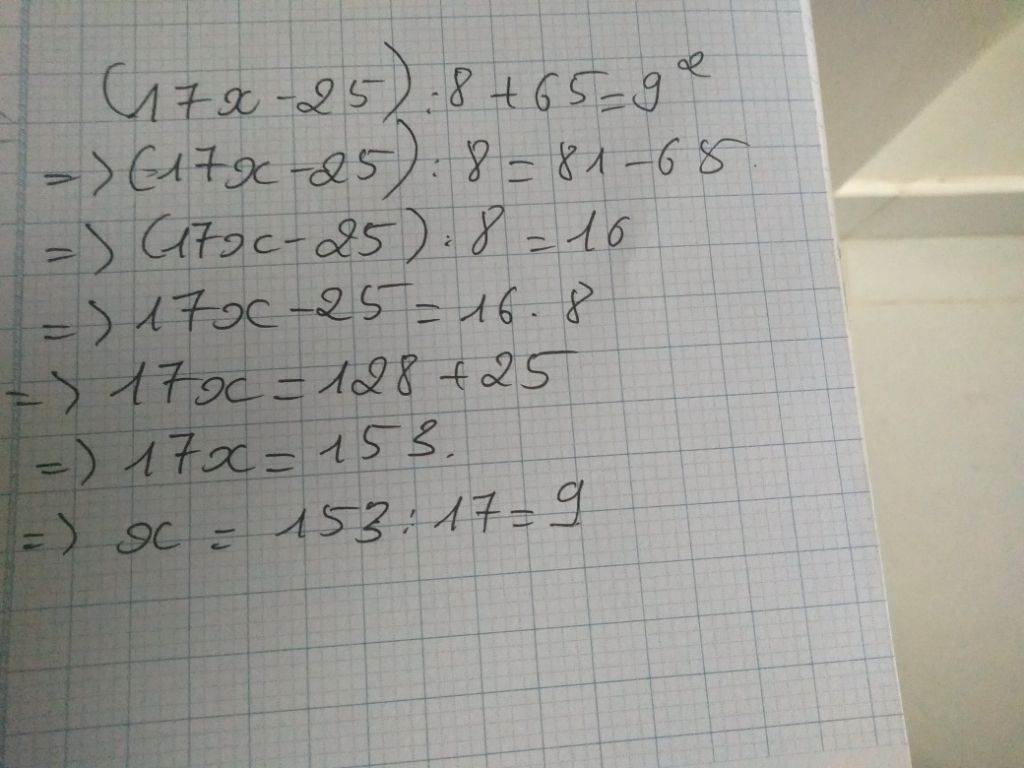 (17x - 25) : 8 + 65 = 9²
=> (17x - 25) : 8 = 81 - 65
=> (17x - 25) : 8 = 16
=> 17x - 25 = 16 . 8
=> 17x = 128 + 25
=> 17x = 153.
=> x = 153 : 17 = 9